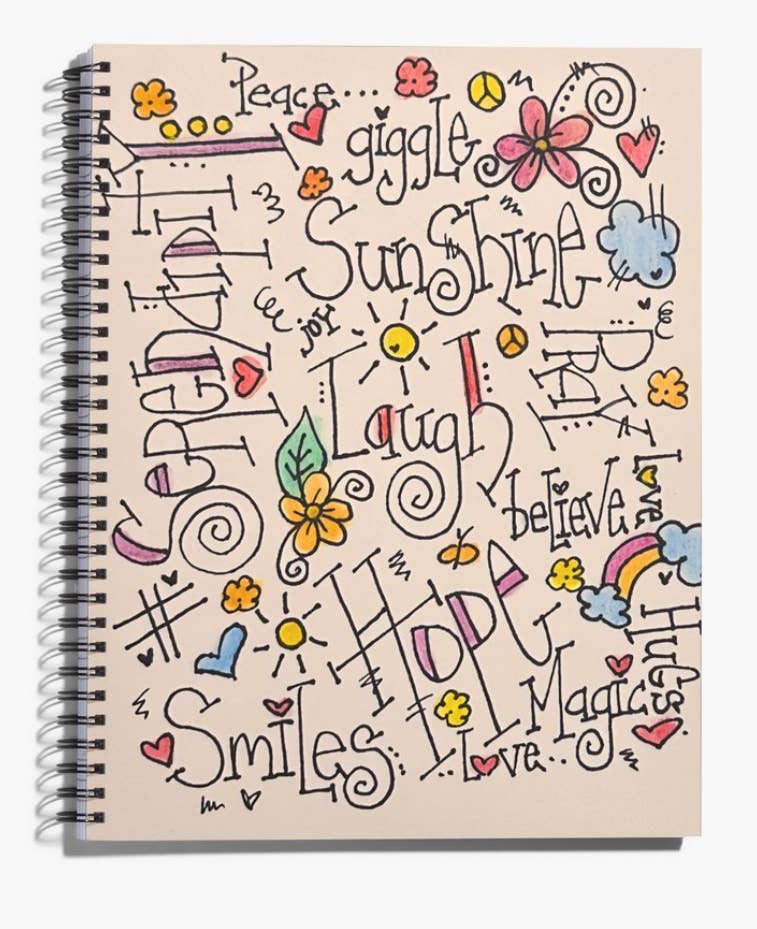 Peace...
giggLe
SunShine
SeRENdipiTY
joy
Laugh
PRAY
beLieve
Love
#
HOPE
HuGs
Magic
SmiLes
Love..